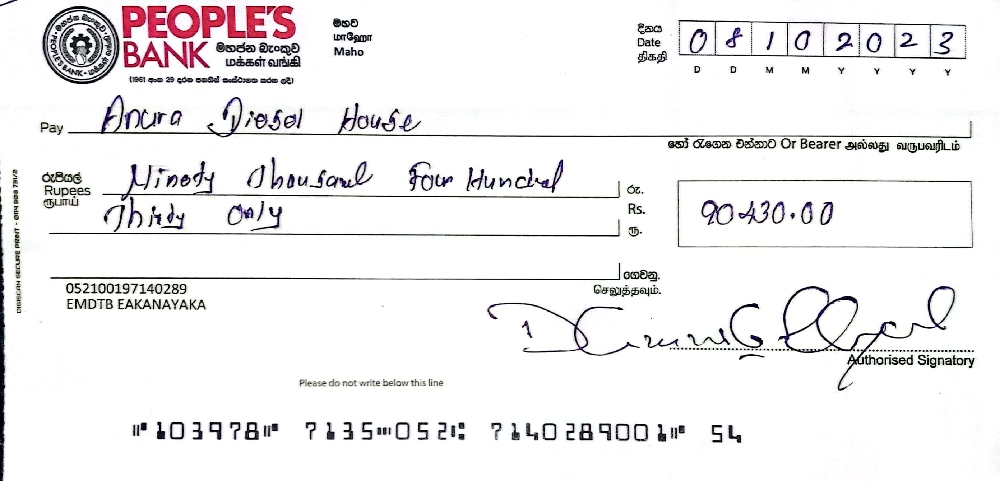 PEOPLE'S
BANK මහජන බැංකුව
மக்கள் வங்கி
(1961 අංක 29 දරන පනතින් සංස්ථාගත කරන ලදි)
මහව
மாஹோ
Maho
දිනය
Date
திகதி
0 8 1 0 2 0 2 3
D D M M Y Y Y Y
Pay Anura Diesel House
හෝ රැගෙන එන්නාට Or Bearer அல்லது வருபவரிடம்
රුපියල්
Rupees
ரூபாய்
Ninety Thousand Four Hundred
Thirty Only
රු.
Rs.
ரூ.
90430.00
ගෙවනු.
செலுத்தவும்.
052100197140289
EMDTB EAKANAYAKA
Authorised Signatory
Please do not write below this line
⑈103978⑈ 7135⑉052⑆ 7140289001⑈ 54